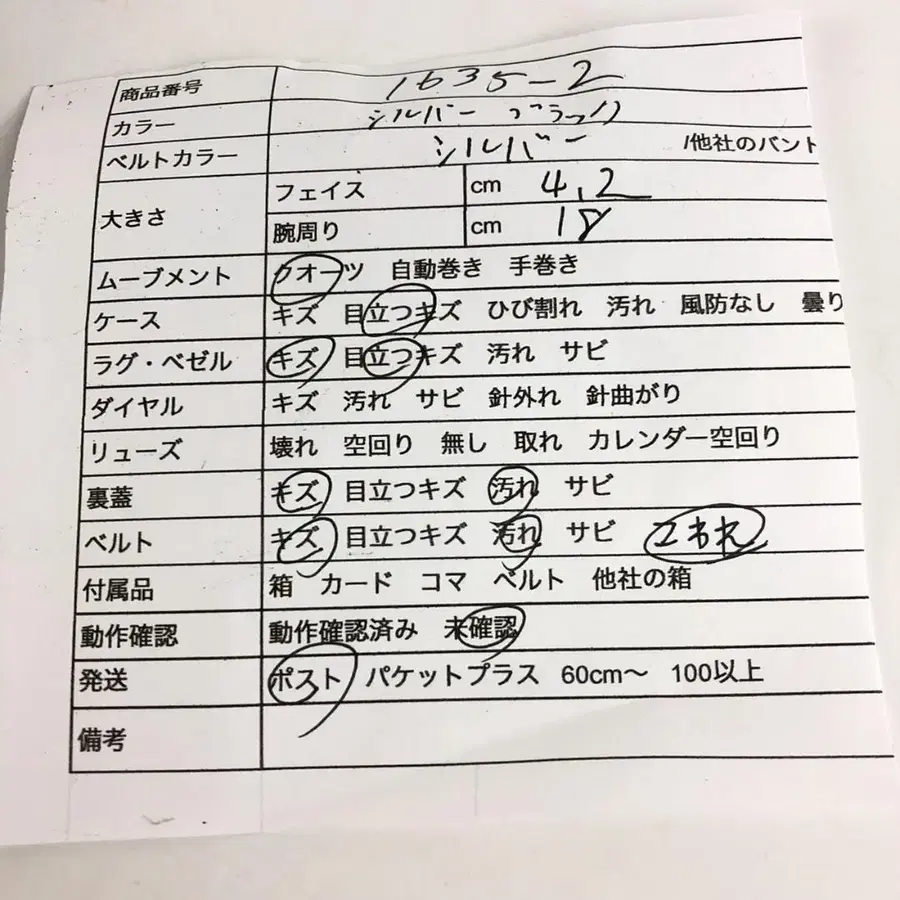 商品番号 1635-2
カラー シルバー ブラック
ベルトカラー シルバー /他社のバント
大きさ フェイス cm 4.2
腕周り cm 18
ムーブメント クオーツ 自動巻き 手巻き
ケース キズ 目立つキズ ひび割れ 汚れ 風防なし 曇り
ラグ・ベゼル キズ 目立つキズ 汚れ サビ
ダイヤル キズ 汚れ サビ 針外れ 針曲がり
リューズ 壊れ 空回り 無し 取れ カレンダー空回り
裏蓋 キズ 目立つキズ 汚れ サビ
ベルト キズ 目立つキズ 汚れ サビ こわれ
付属品 箱 カード コマ ベルト 他社の箱
動作確認 動作確認済み 未確認
発送 ポスト パケットプラス 60cm〜 100以上
備考